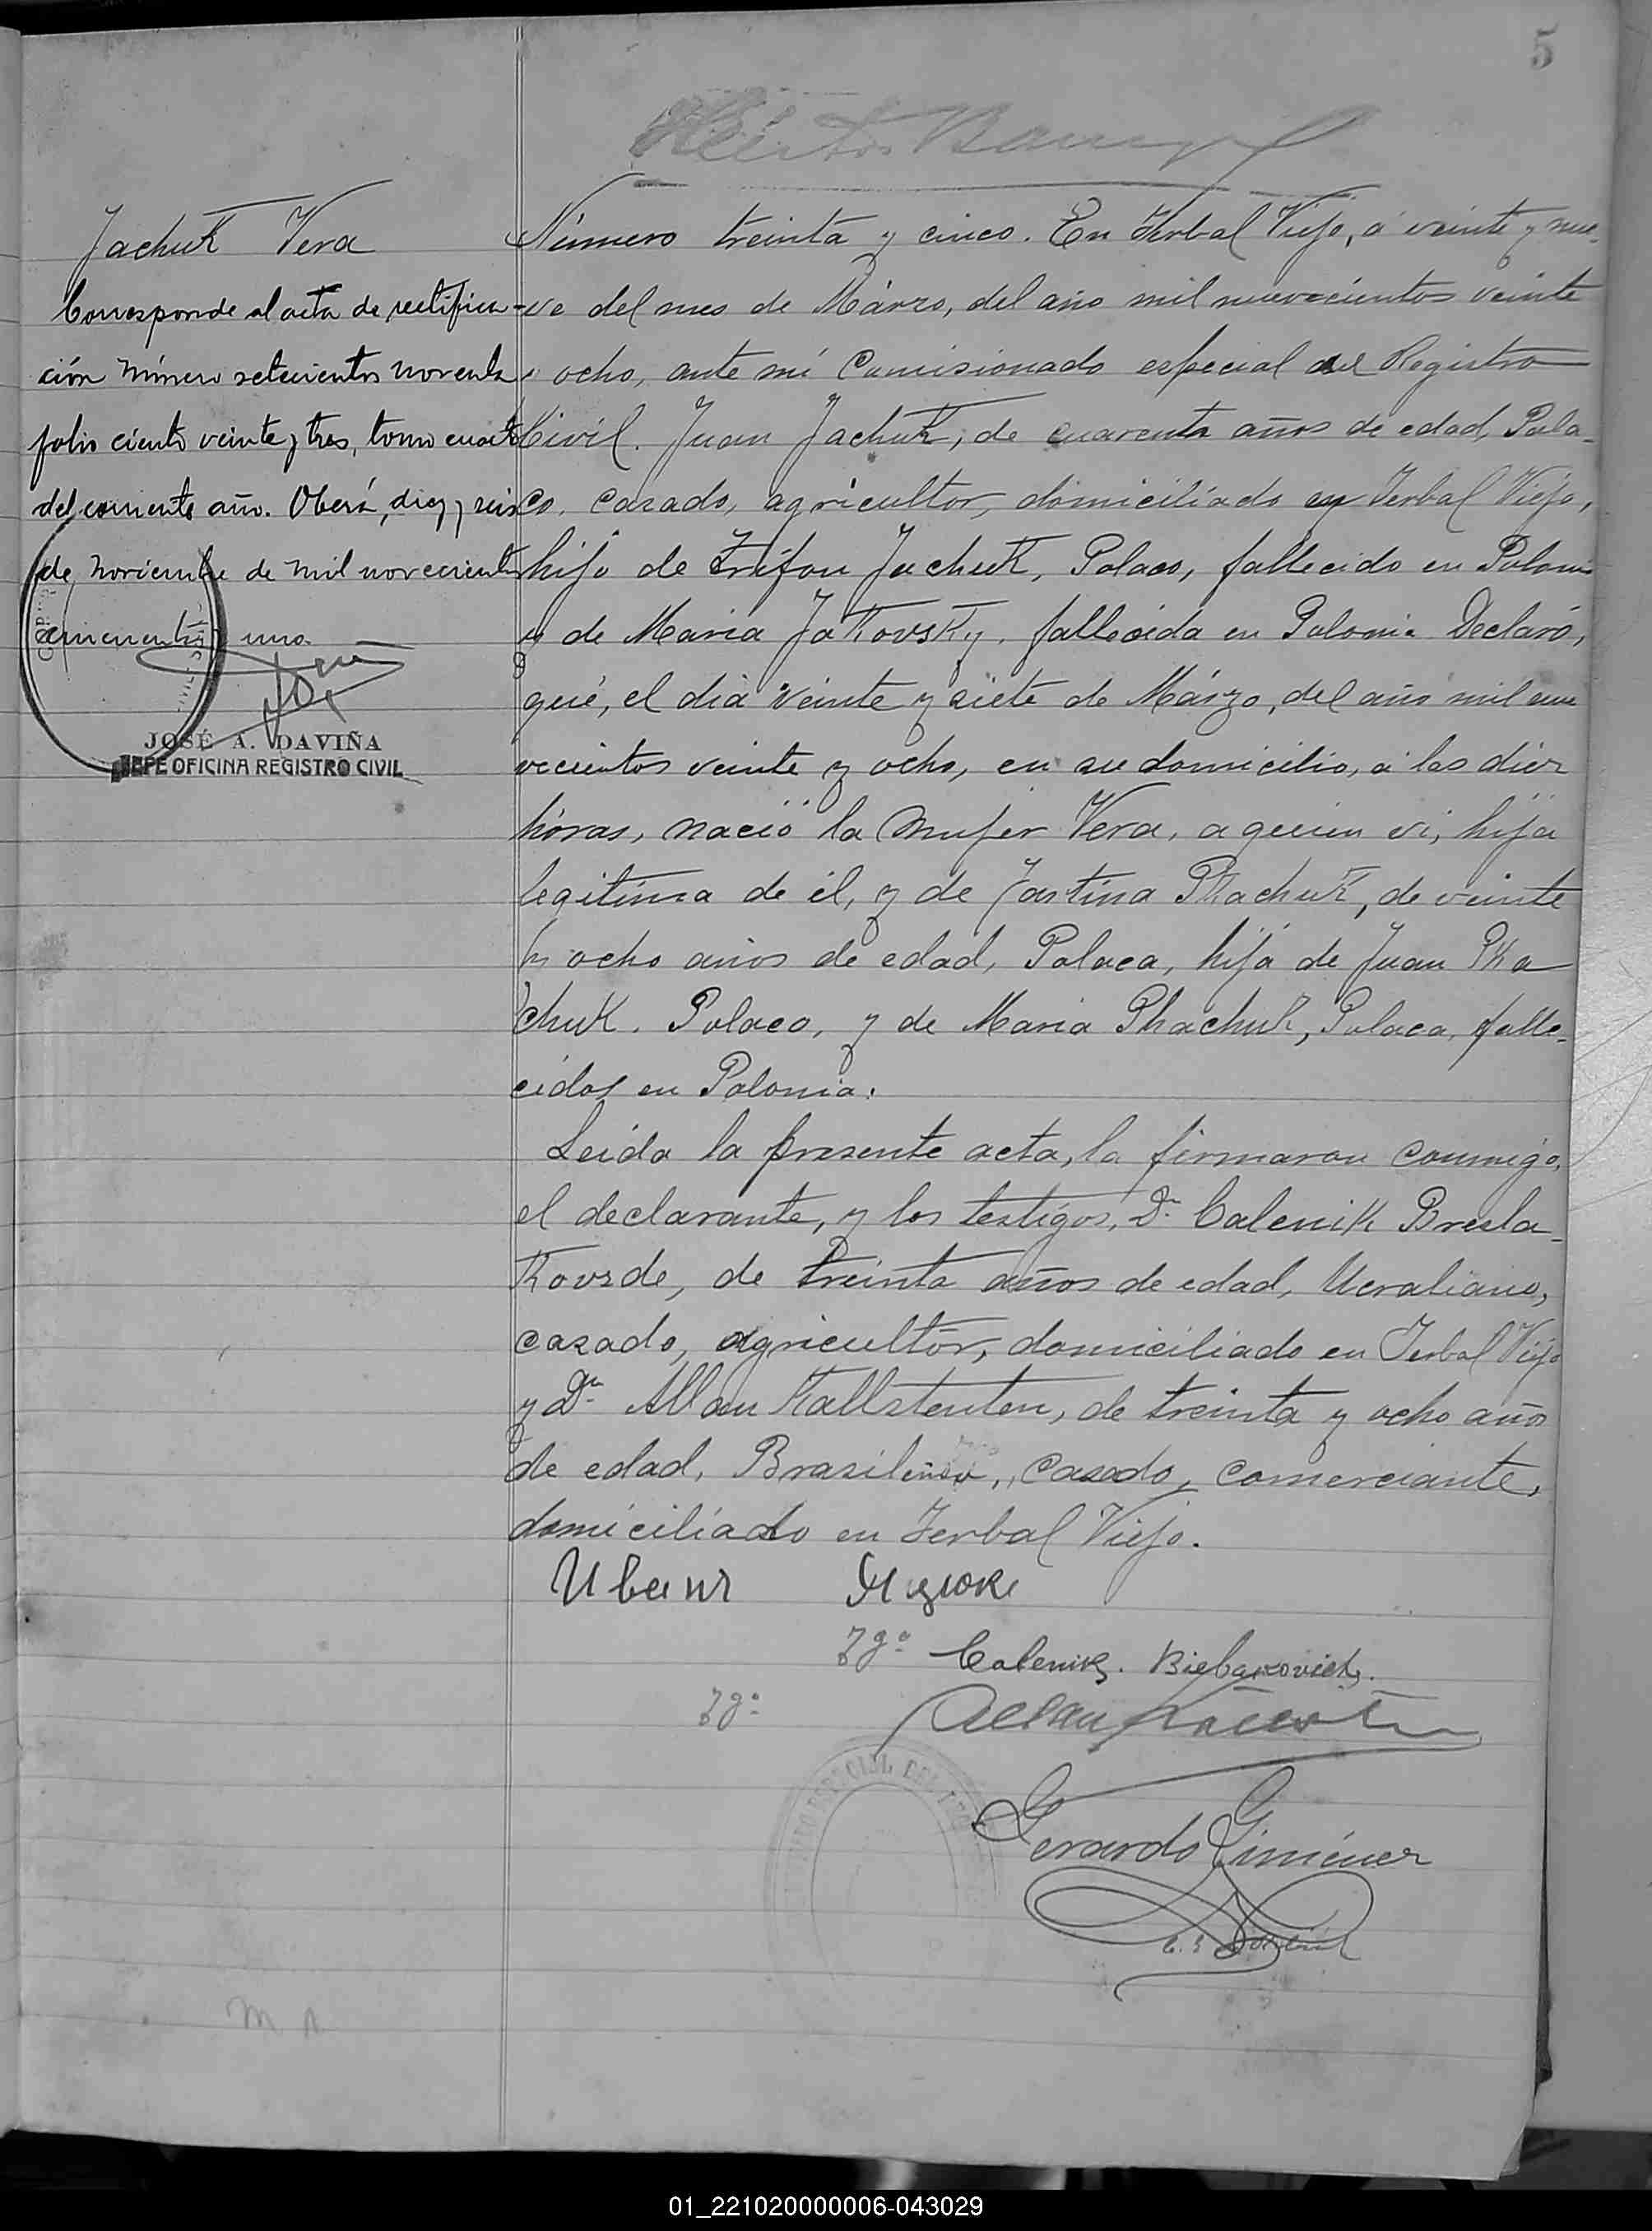 5
Jachuk Vera
Corresponde al acta de rectifica-
ción número setecientos noventa
folio ciento veinte y tres, tomo cuarto
del corriente año. Oberá, diez y seis
de noviembre de mil novecientos
cincuenta y uno.
JOSÉ A. DAVIÑA
JEFE OFICINA REGISTRO CIVIL
Número treinta y cinco. En Yerbal Viejo, á veinte y nue-
ve del mes de Márzo, del año mil nuevecientos veinte
y ocho, ante mí Comisionado especial del Registro
Civil. Juan Jachuk, de cuarenta años de edad, Pola-
co. casado, agricultor, domiciliado en Yerbal Viejo,
hijo de Trifon Jachuk, Polaco, fallecido en Polonia
y de Maria Jakovsky. fallecida en Polonia Declaró,
qué, el dia veinte y siete de Márzo, del año mil nue
vecientos veinte y ocho, en su domicilio, a las diez
horas, nació la mujer Vera, a quien vi, hija
legitima de él, y de Jastina Pkachuk, de veinte
y ocho años de edad, Polaca, hija de Juan Pka
chuk. Polaco, y de Maria Pkachuk, Polaca, falle-
cidos en Polonia.
Leida la presente acta, la firmaron conmigo,
el declarante, y los testigos, Dn Calenik Bresla-
kovsde, de treinta años de edad, Ucraliano,
casado, agricultor, domiciliado en Yerbal Viejo
y Dn Allan Kallstenten, de treinta y ocho años
de edad, Brasileño, casado, comerciante,
domiciliado en Yerbal Viejo.
Иванъ Яцюк
Tgo Calenik.
Tgo Allan
Gerardo Giménez
01_221020000006-043029